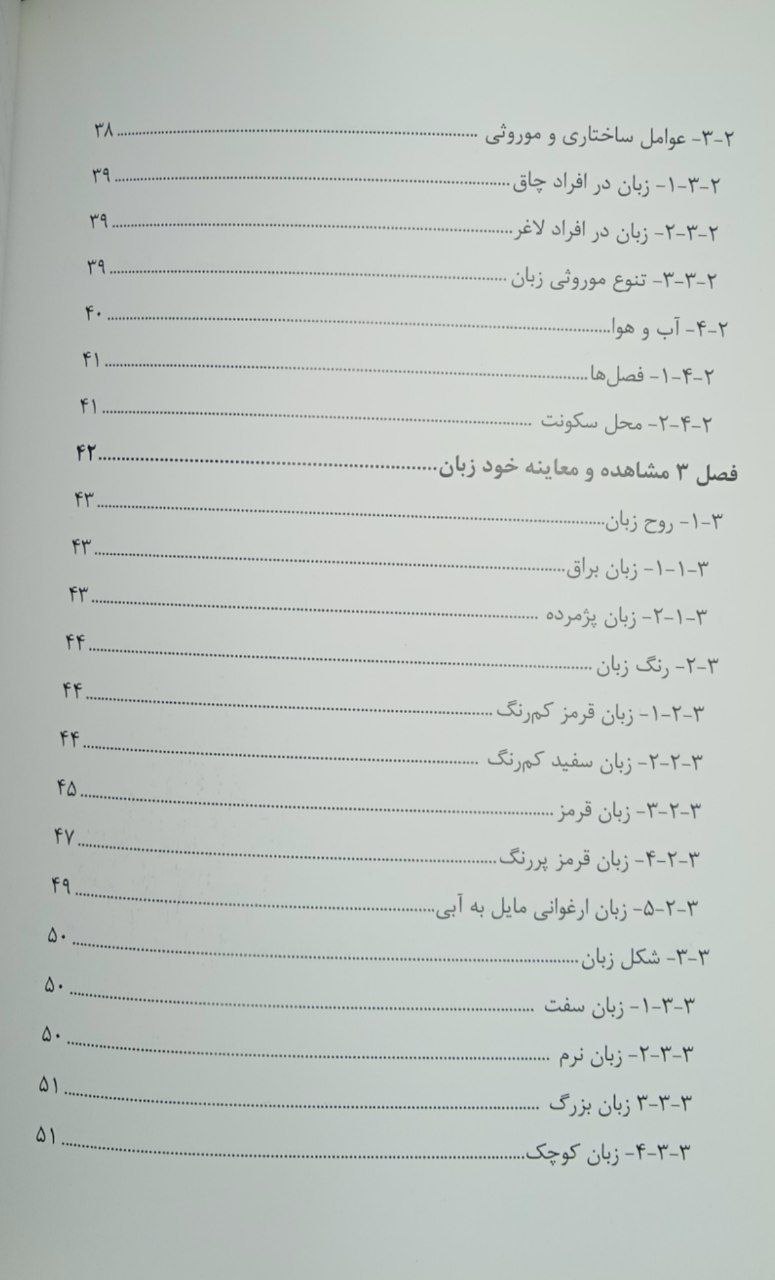 ۲-۳- عوامل ساختاری و موروثی ........ ۳۸
۲-۳-۱- زبان در افراد چاق ........ ۳۹
۲-۳-۲- زبان در افراد لاغر ........ ۳۹
۲-۳-۳- تنوع موروثی زبان ........ ۳۹
۲-۴- آب و هوا ........ ۴۰
۲-۴-۱- فصل‌ها ........ ۴۱
۲-۴-۲- محل سکونت ........ ۴۱
فصل ۳ مشاهده و معاینه خود زبان ........ ۴۲
۳-۱- روح زبان ........ ۴۳
۳-۱-۱- زبان براق ........ ۴۳
۳-۱-۲- زبان پژمرده ........ ۴۳
۳-۲- رنگ زبان ........ ۴۴
۳-۲-۱- زبان قرمز کم‌رنگ ........ ۴۴
۳-۲-۲- زبان سفید کم‌رنگ ........ ۴۴
۳-۲-۳- زبان قرمز ........ ۴۵
۳-۲-۴- زبان قرمز پررنگ ........ ۴۷
۳-۲-۵- زبان ارغوانی مایل به آبی ........ ۴۹
۳-۳- شکل زبان ........ ۵۰
۳-۳-۱- زبان سفت ........ ۵۰
۳-۳-۲- زبان نرم ........ ۵۰
۳-۳-۳ زبان بزرگ ........ ۵۱
۳-۳-۴- زبان کوچک ........ ۵۱